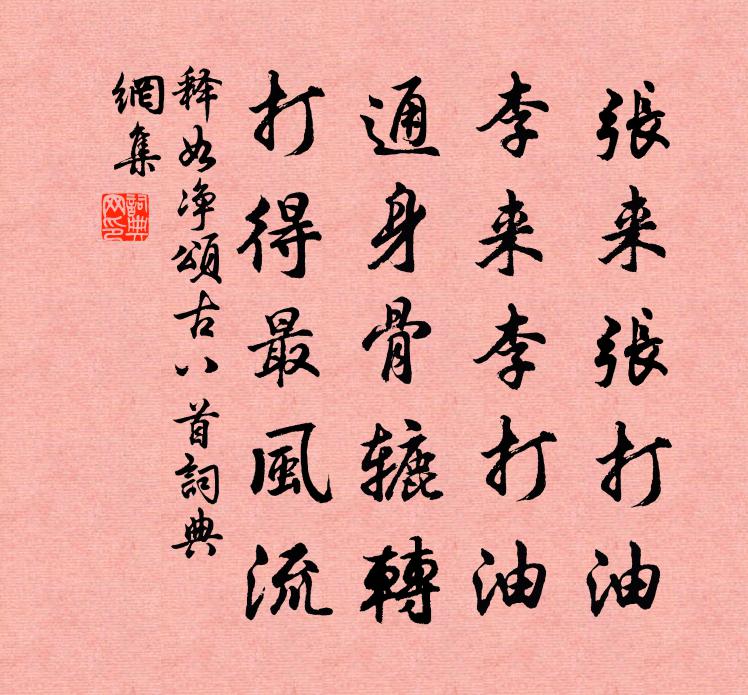 張来張打油
李来李打油
通身骨辘轉
打得最風流
释如净頌古八首詞典
網集
詞典
网印